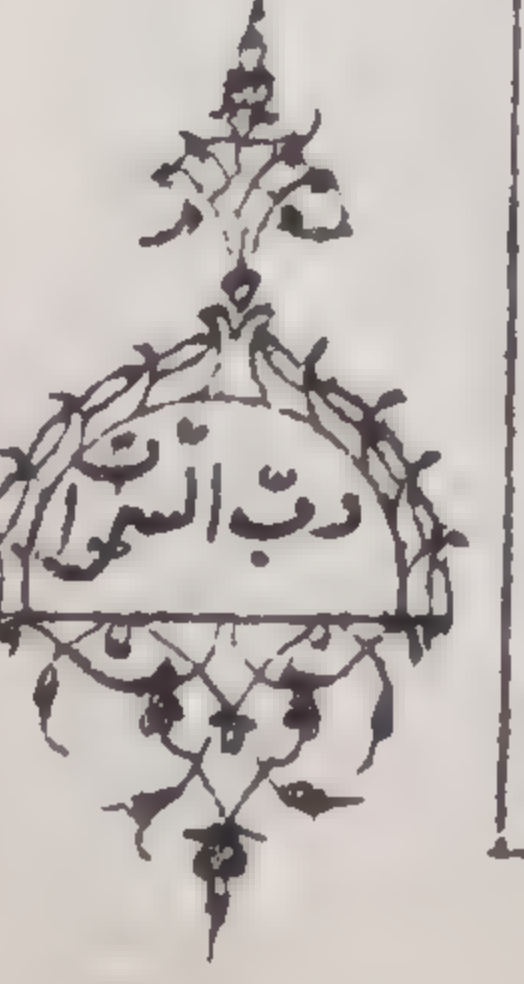 ربّ السموات